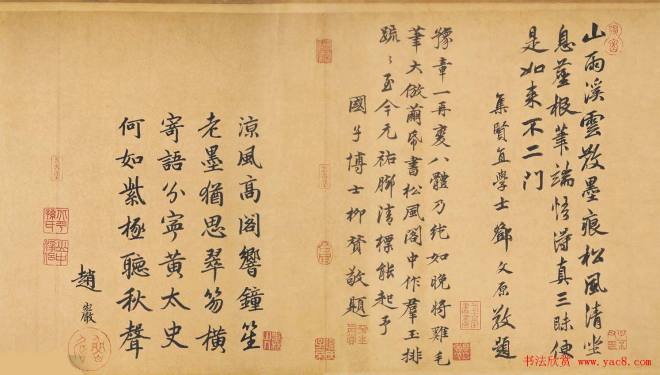 山雨溪雲散墨痕松風清坐
息塵根筆端悟得真三昧便
是如来不二門
集賢直學士鄧文原敬題
豫章一再變八體乃純如晚將雞毛
筆大倣繭帋書松風閣中作羣玉排
疏〻至今元祐腳清標能起予
國子博士柳贇敬題
涼風高閣響鐘笙
老墨猶思翠笏橫
寄語分寧黃太史
何如紫極聽秋聲
趙巖
书法欣赏
www.yac8.com